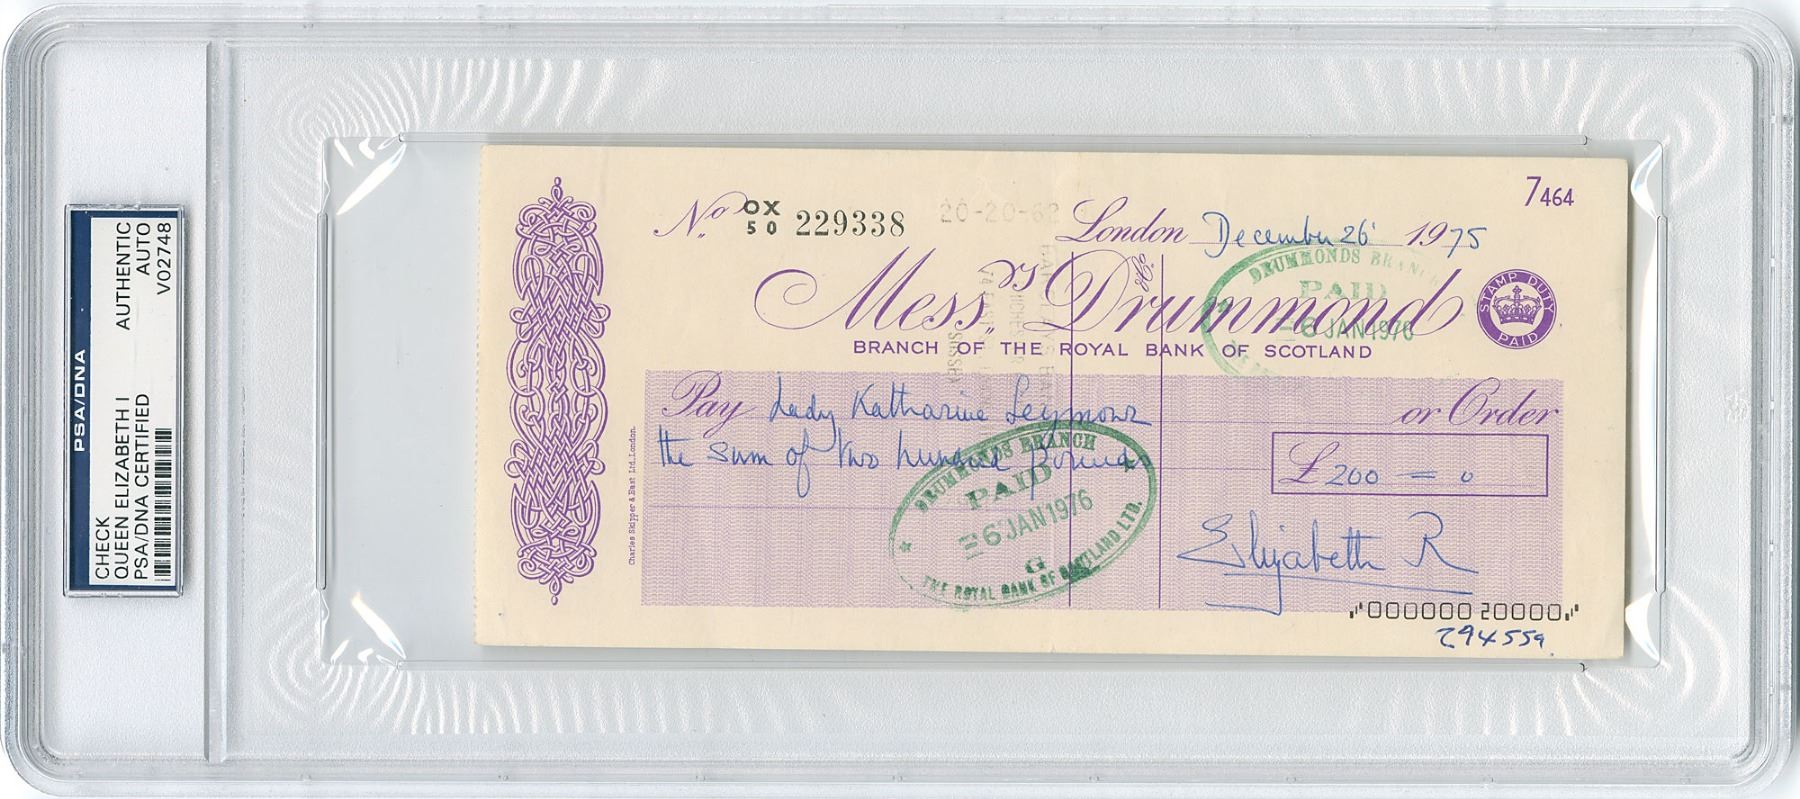 PSA/DNA
CHECK
QUEEN ELIZABETH I
PSA/DNA CERTIFIED
AUTHENTIC
AUTO
V02748
7464
No. OX
50 229338
20-20-62
London December 26 1975
Messrs. Drummond
BRANCH OF THE ROYAL BANK OF SCOTLAND
STAMP DUTY
PAID
DRUMMONDS BRANCH
PAID
6 JAN 1976
Pay Lady Katharine Seymour or Order
the sum of two hundred pounds
£200 = 0
DRUMMONDS BRANCH
PAID
6 JAN 1976
G
THE ROYAL BANK OF SCOTLAND LTD.
Elizabeth R
Charles Skipper & East Ltd. London.
000000 20000
294559